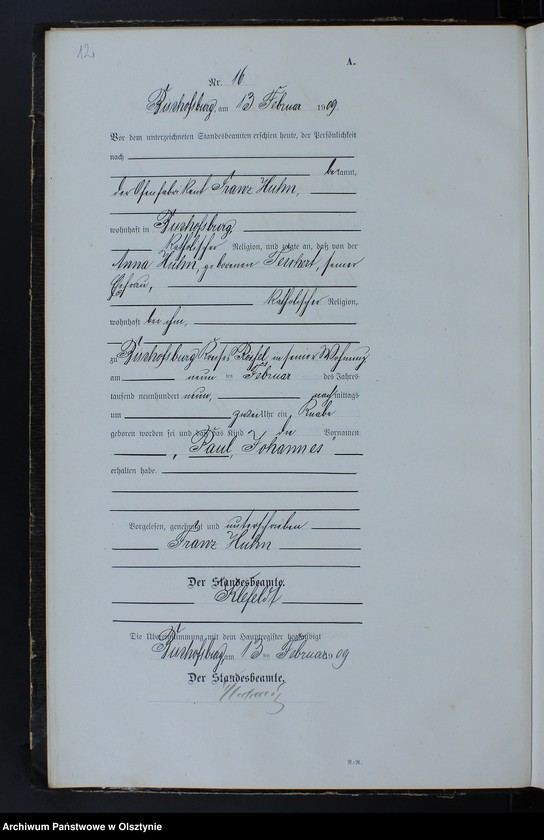 12.
A.
Nr. 16
Bischofsburg, am 13 Februar 1909.
Vor dem unterzeichneten Standesbeamten erschien heute, der Persönlichkeit
nach
bekannt,
der Ofenfabrikant Franz Huhn,
wohnhaft in Bischofsburg
katholischer Religion, und zeigte an, daß von der
Anna Huhn, geborenen Teschert, seiner
Ehefrau,
katholischer Religion,
wohnhaft bei ihm,
zu Bischofsburg Kreises Rößel, in seiner Wohnung
am neun ten Februar des Jahres
tausend neunhundert neun, nachmittags
um zwei Uhr ein Knabe
geboren worden sei und daß das Kind die Vornamen
Paul, Johannes
erhalten habe.
Vorgelesen, genehmigt und unterschrieben
Franz Huhn
Der Standesbeamte.
Klefeldt
Die Übereinstimmung mit dem Hauptregister beglaubigt
Bischofsburg am 13 ten Februar 1909
Der Standesbeamte.
R.-R.
Archiwum Państwowe w Olsztynie